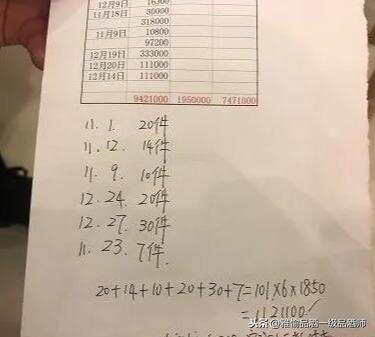 12月9日 16300
11月18日 30000
318000
11月9日 10800
97200
12月19日 333000
12月20日 111000
12月14日 111000
9421000 1950000 7471000
11. 1. 20件
11. 12. 14件
11. 9. 10件
12. 24. 20件
12. 27. 30件
11. 23. 7件.
20+14+10+20+30+7=101×6×1850
=1121100✓
头条号/雅愉品酒一级品酒师